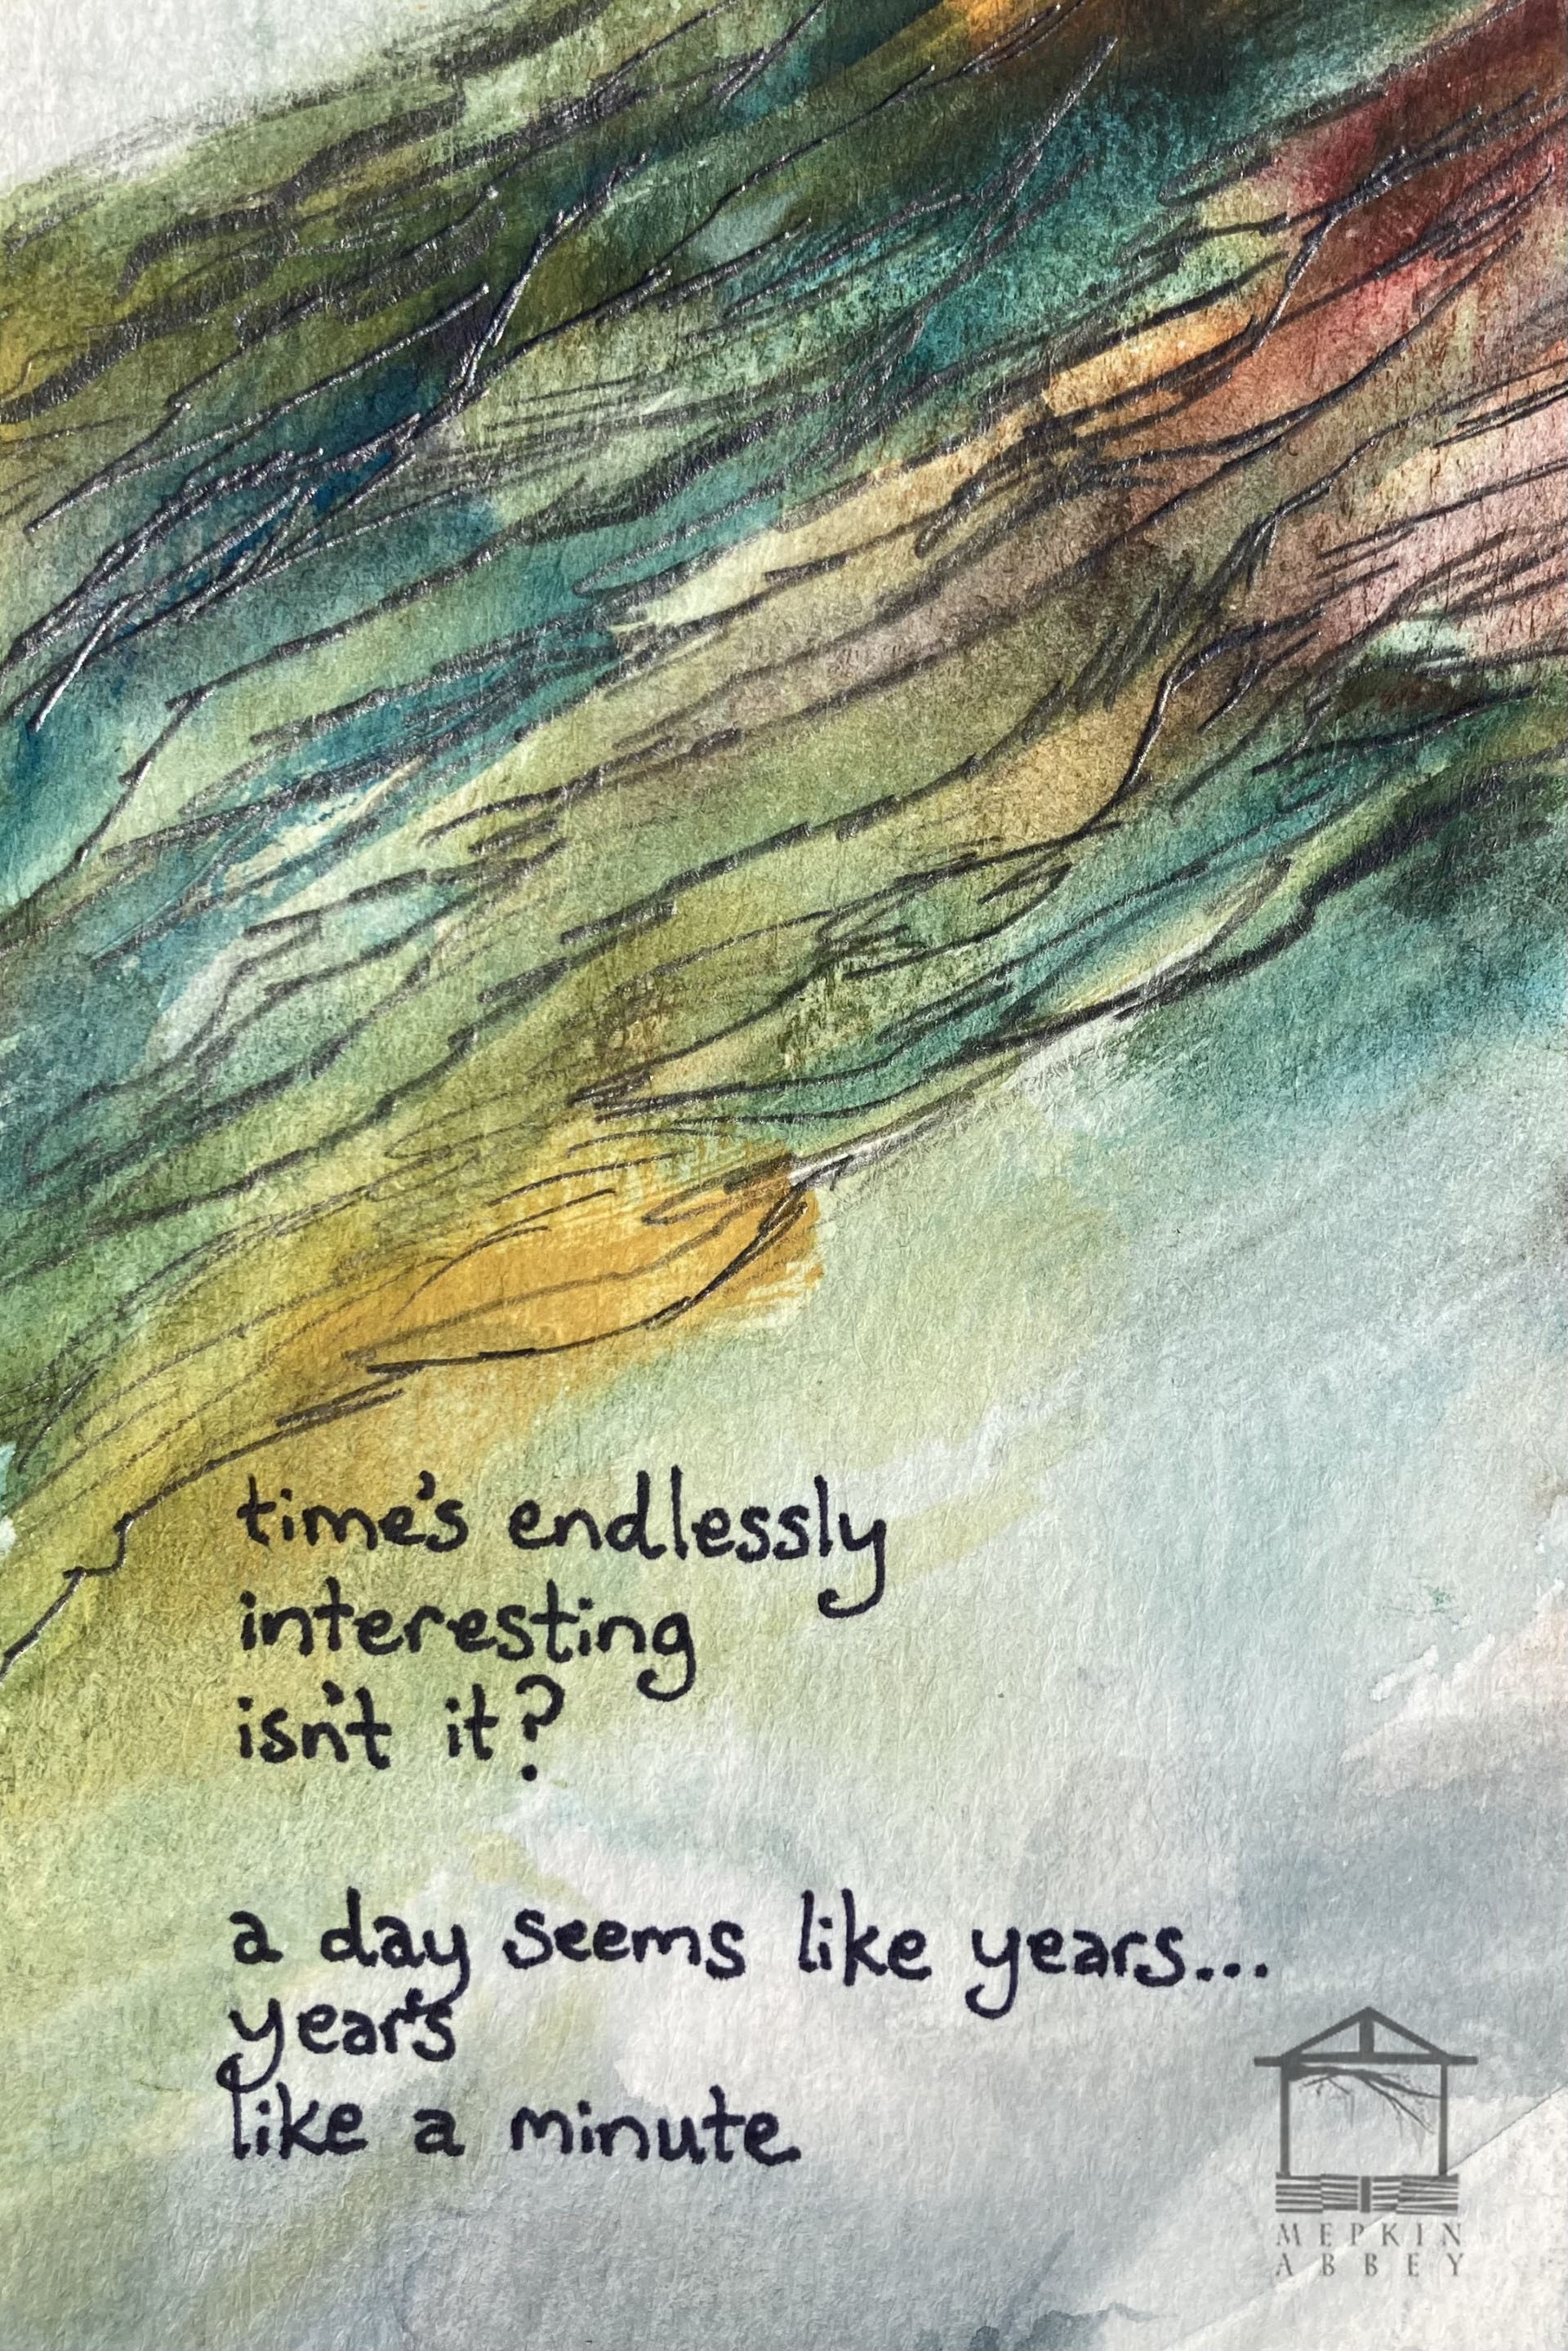 time's endlessly
interesting
isn't it?
a day seems like years...
year's
like a minute
MEPKIN
ABBEY